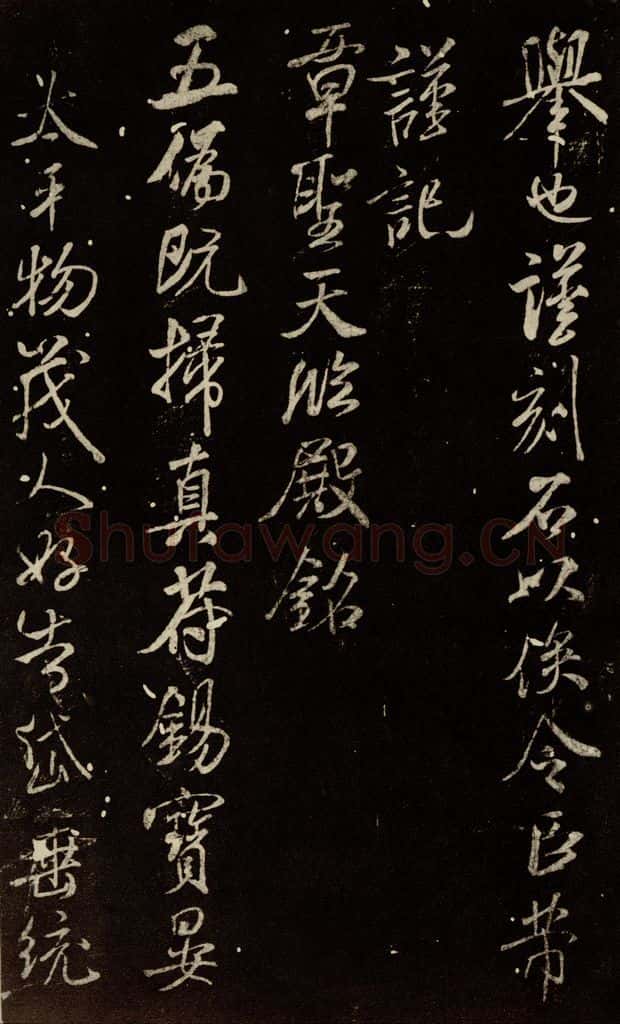 舉也謹刻石以俟令臣芾
謹記
章聖天臨殿銘
五僞既掃真符錫寶晏
太平物茂人好青岱垂統
Shufawang.CN